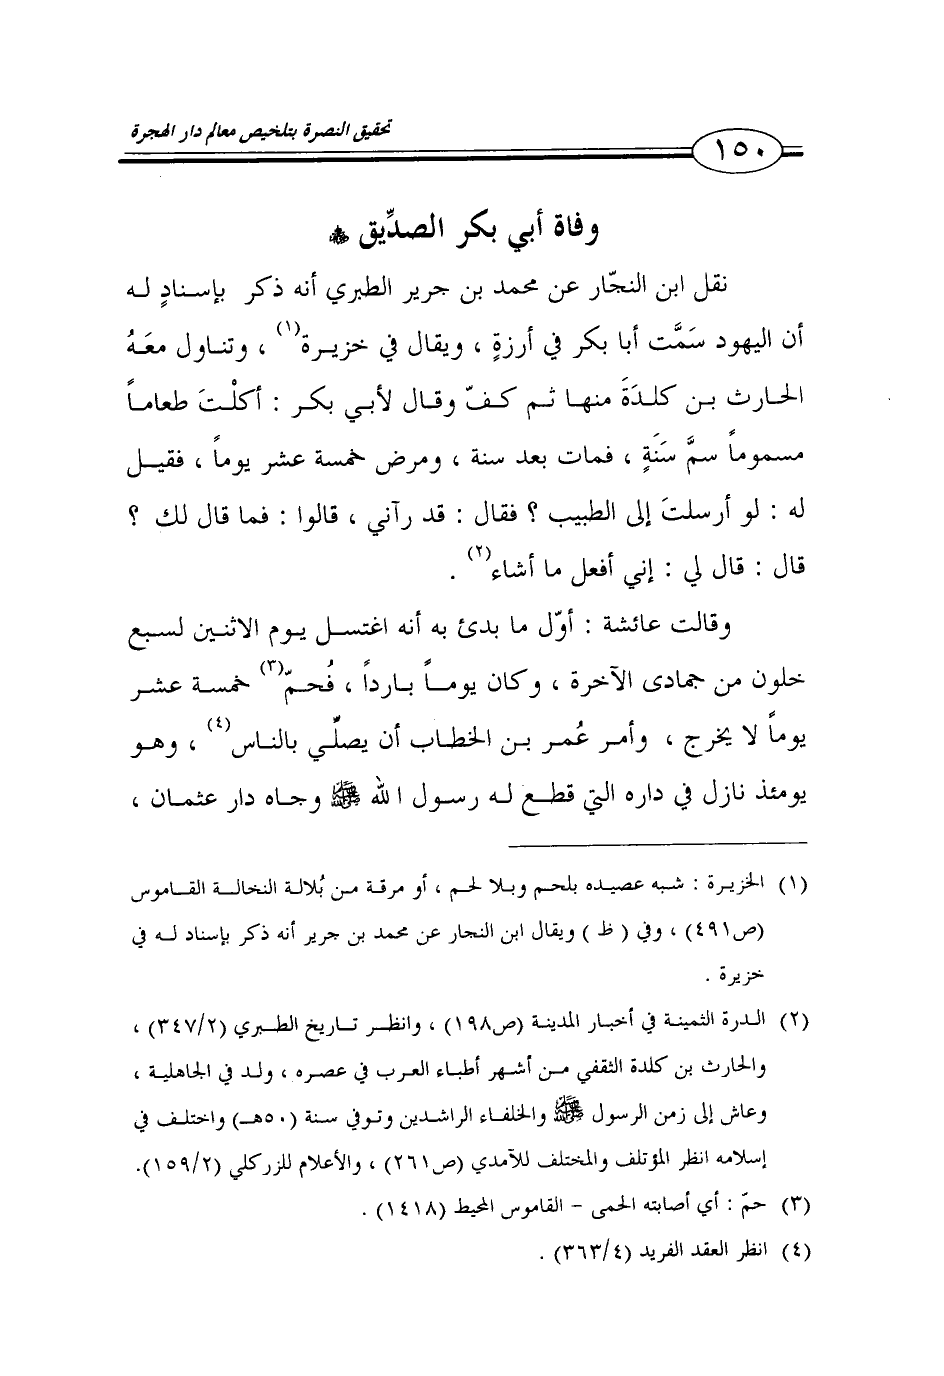 تحقيق النصرة بتلخيص معالم دار الهجرة
١٥٠
وفاة أبي بكر الصدِّيق ﷺ
نقل ابن النجّار عن محمد بن جرير الطبري أنه ذكر بإسنادٍ له
أن اليهود سَمَّت أبا بكر في أرزةٍ ، ويقال في خزيرة(١) ، وتناول معَهُ
الحارث بن كلدَةَ منها ثم كفّ وقال لأبي بكر : أكلْتَ طعاماً
مسموماً سمَّ سَنَةٍ ، فمات بعد سنة ، ومرض خمسة عشر يوماً ، فقيل
له : لو أرسلتَ إلى الطبيب ؟ فقال : قد رآني ، قالوا : فما قال لك ؟
قال : قال لي : إني أفعل ما أشاء(٢) .
وقالت عائشة : أوّل ما بدئ به أنه اغتسل يوم الاثنين لسبع
خلون من جمادى الآخرة ، وكان يوماً بارداً ، فُحمّ(٣) خمسة عشر
يوماً لا يخرج ، وأمر عُمر بن الخطاب أن يصلّي بالناس(٤) ، وهو
يومئذ نازل في داره التي قطع له رسول الله ﷺ وجاه دار عثمان ،
(١) الخزيرة : شبه عصيده بلحم وبلا لحم ، أو مرقة من بُلالة النخالة القاموس
(ص٤٩١) ، وفي ( ظ ) ويقال ابن النجار عن محمد بن جرير أنه ذكر بإسناد له في
خزيرة .
(٢) الدرة الثمينة في أخبار المدينة (ص١٩٨) ، وانظر تاريخ الطبري (٣٤٧/٢) ،
والحارث بن كلدة الثقفي من أشهر أطباء العرب في عصره ، ولد في الجاهلية ،
وعاش إلى زمن الرسول ﷺ والخلفاء الراشدين وتوفي سنة (٥٠هـ) واختلف في
إسلامه انظر المؤتلف والمختلف للآمدي (ص٢٦١) ، والأعلام للزركلي (١٥٩/٢).
(٣) حمّ : أي أصابته الحمى - القاموس المحيط (١٤١٨) .
(٤) انظر العقد الفريد (٣٦٣/٤) .